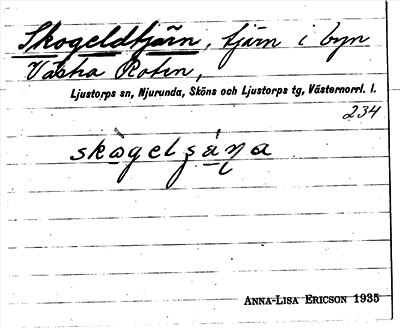 Skogeldtjärn, tjärn i byn
Västra Roten,
Ljustorps sn, Njurunda, Sköns och Ljustorps tg, Västernorrl. l.
234
ANNA-LISA ERICSON 1935